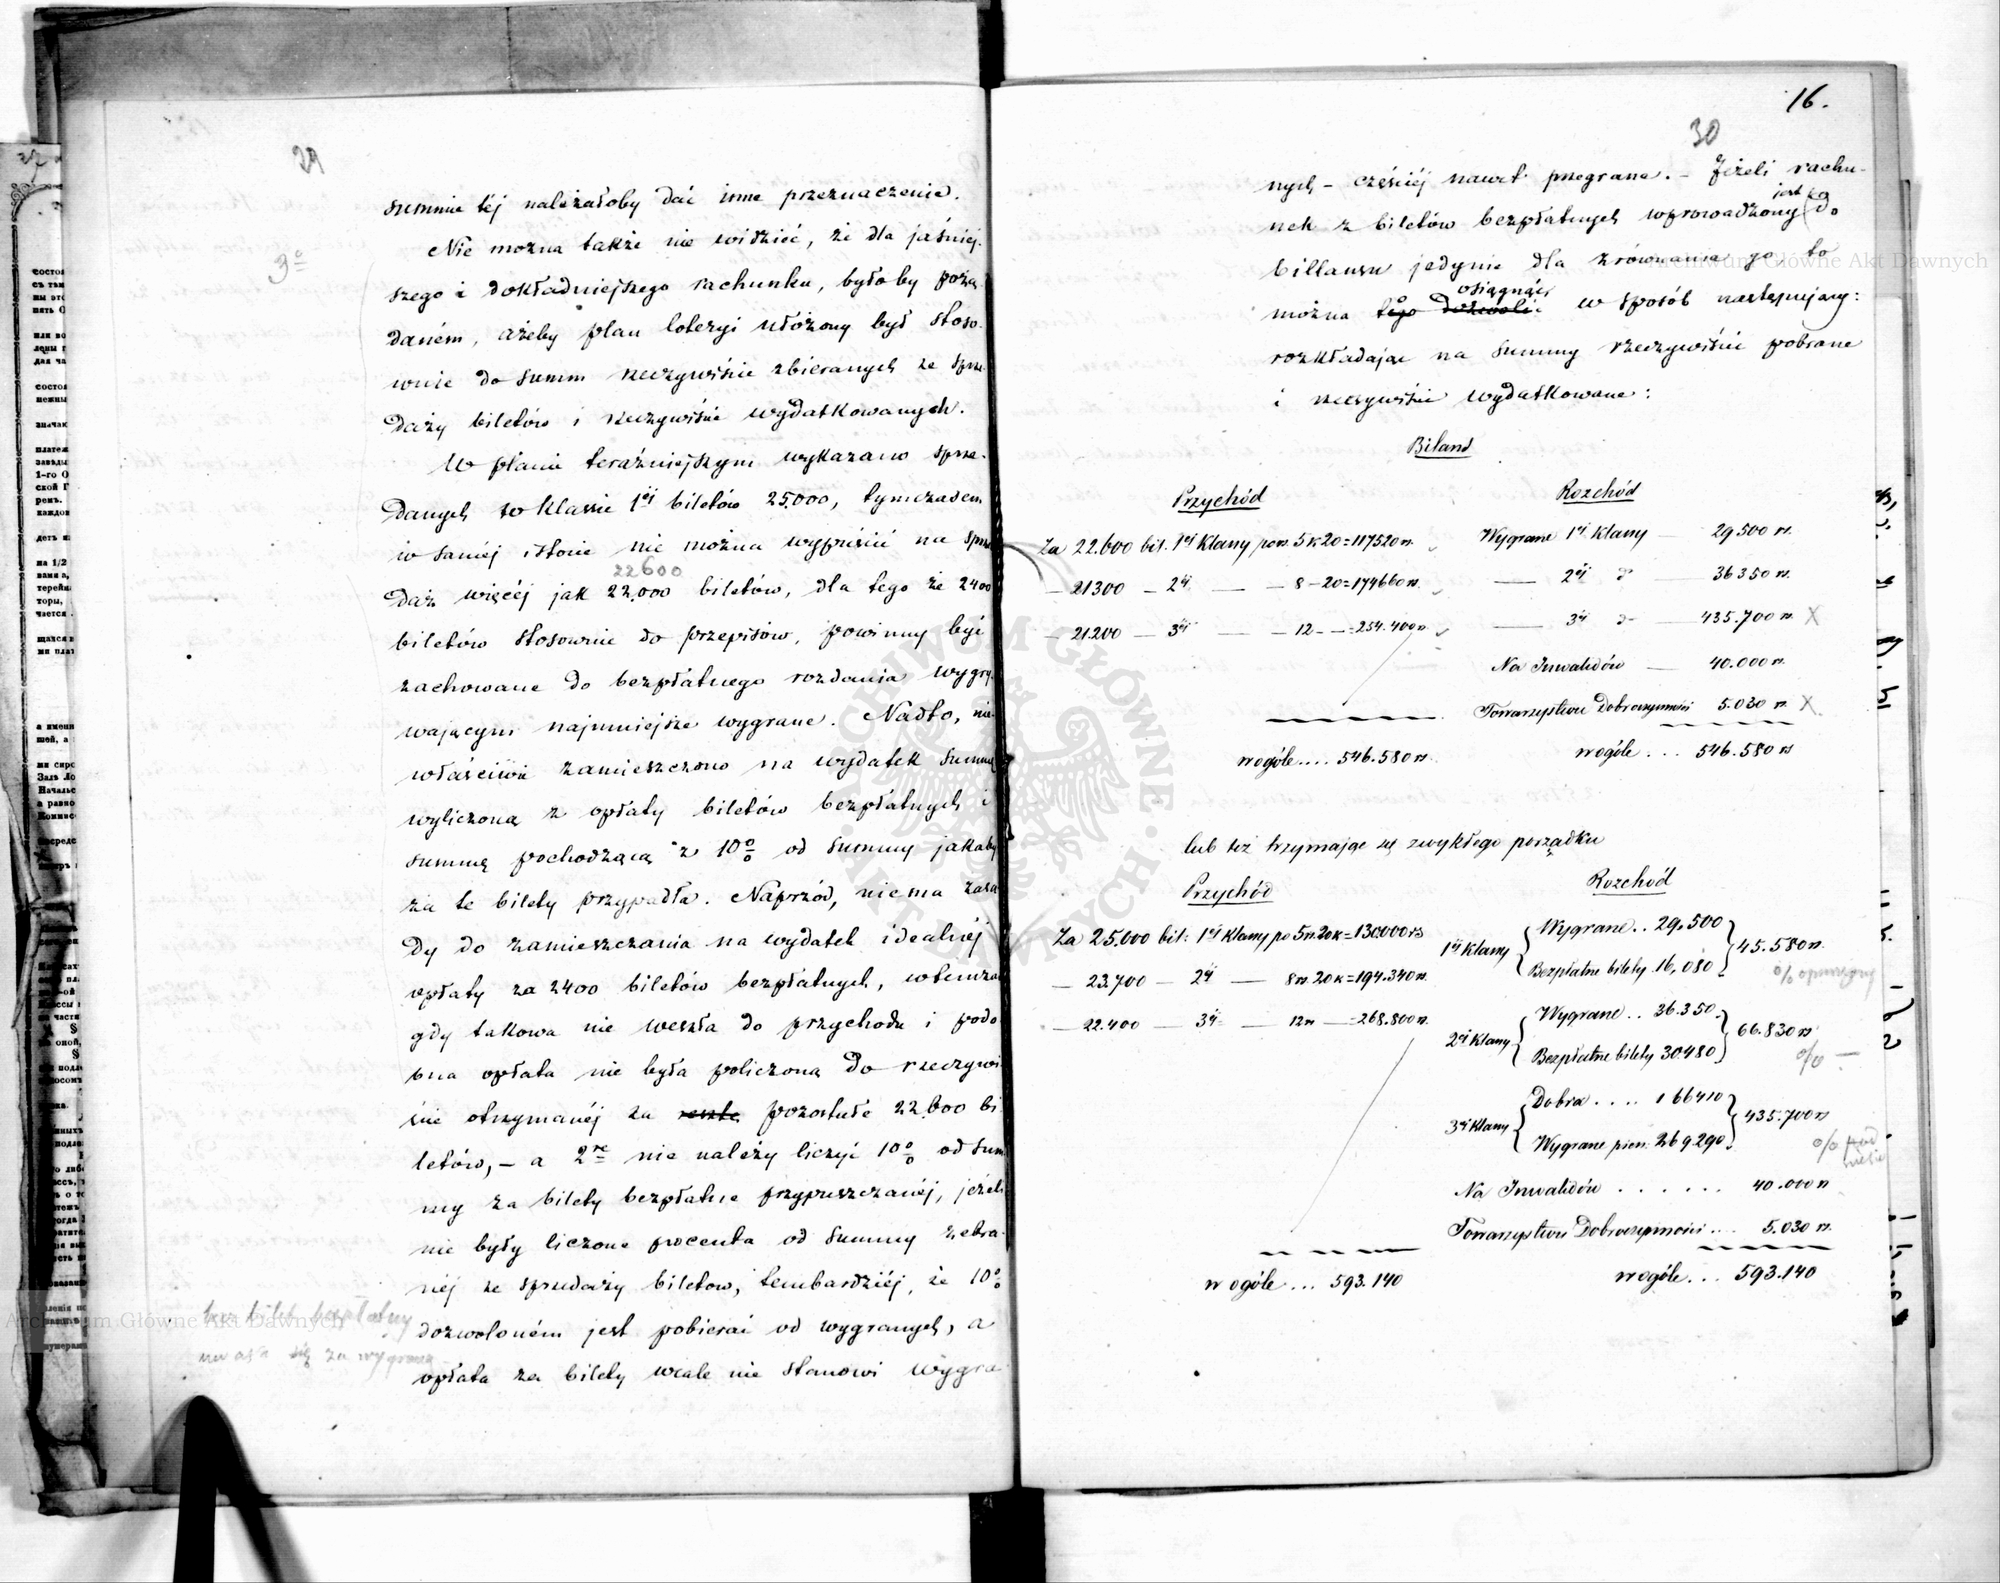 29
summie tej należałoby dać inne przeznaczenie.
3º
Nie można także nie widzieć, że dla jaśniej-
szego i dokładniejszego rachunku, byłoby pożą-
daném, ażeby plan loteryi ułożony był stoso-
wnie do summ rzeczywiście zbieranych ze sprze-
daży biletów i rzeczywiście wydatkowanych.
W planie teraźniejszym wykazano sprze-
danych w klassie 1éj biletów 25.000, tymczasem
w saméj istocie nie można wypuścić na sprze
22600
daż więcéj jak 22.000 biletów, dla tego że 2400
biletów stosownie do przepisów, powinny być
zachowane do bezpłatnego rozdania wygry-
wającym najmniejsze wygrane. Nadto, nie-
właściwie zamieszczono na wydatek summę
wyliczoną z opłaty biletów bezpłatnych i
summą pochodzącą z 10% od summy jakaby
za te bilety przypadła. Naprzód, niema zasa
dy do zamieszczania na wydatek idealnéj
opłaty za 2400 biletów bezpłatnych, wtenczas
gdy takowa nie weszła do przychodu i podo
bna opłata nie była policzoną do rzeczywi
ście otrzymanéj za resztę pozostałe 22.600 bi
letów, – a 2re nie należy liczyć 10% od sum
my za bilety bezpłatne przypuszczanéj, jeżeli
nie były liczone procenta od summy zebra-
néj ze sprzedaży biletów, tembardziéj, że 10%
dozwoloném jest pobierać od wygranych, a
opłata za bilety wcale nie stanowi wygra
bilet bezpłatny
uważa się za wygraną
16.
30
nych – częściéj nawet przegrane. – Jeżeli rachu-
jest
nek z biletów bezpłatnych wprowadzony do
billansu jedynie dla zrównania go to
osiągnąć
można tego dozwolić w sposób następujący:
rozkładając na summy rzeczywiście pobrane
i rzeczywiście wydatkowane:
Bilans
Przychód
Rozchód
Za 22.600 bil. 1éj Klassy po rs. 5 k 20 = 117520 rs.
Wygrane 1éj Klassy — 29.500 rs.
— 21300 — 2éj — — 8 – 20 = 174660 rs.
— 2éj d° 36350 rs.
— 21.200 — 3éj — — 12 – — = 254.400 rs
— 3éj d° — 435.700 rs X
Na Inwalidów — 40.000 rs.
Towarzystwu Dobroczynności 5.030 rs X
w ogóle .... 546.580 rs.
w ogóle ... 546.580 rs
lub też trzymając się zwykłego porządku
Przychód
Rozchód
Za 25.000 bil: 1éj Klassy po 5 rs. 20 k = 130.000 rs
1éj Klassy { Wygrane .. 29,500
Bezpłatne bilety 16,080 } 45.580 rs.
— 23.700 — 2éj — 8 rs. 20 k = 194.340 rs.
— 22.400 — 3éj — 12 rs — = 268.800 rs.
2éj Klassy { Wygrane .. 36.350
Bezpłatne bilety 30480 } 66.830 rs
% —
3éj Klassy { Dobra .... 166410
Wygrane pien. 269.290 } 435.700 rs
Na Inwalidów ...... 40.000 rs
Towarzystwu Dobroczynności .... 5.030 rs.
w ogóle ... 593.140
w ogóle ... 593.140
Archiwum Główne Akt Dawnych
Archiwum Główne Akt Dawnych
ARCHIWUM GŁÓWNE AKT DAWNYCH